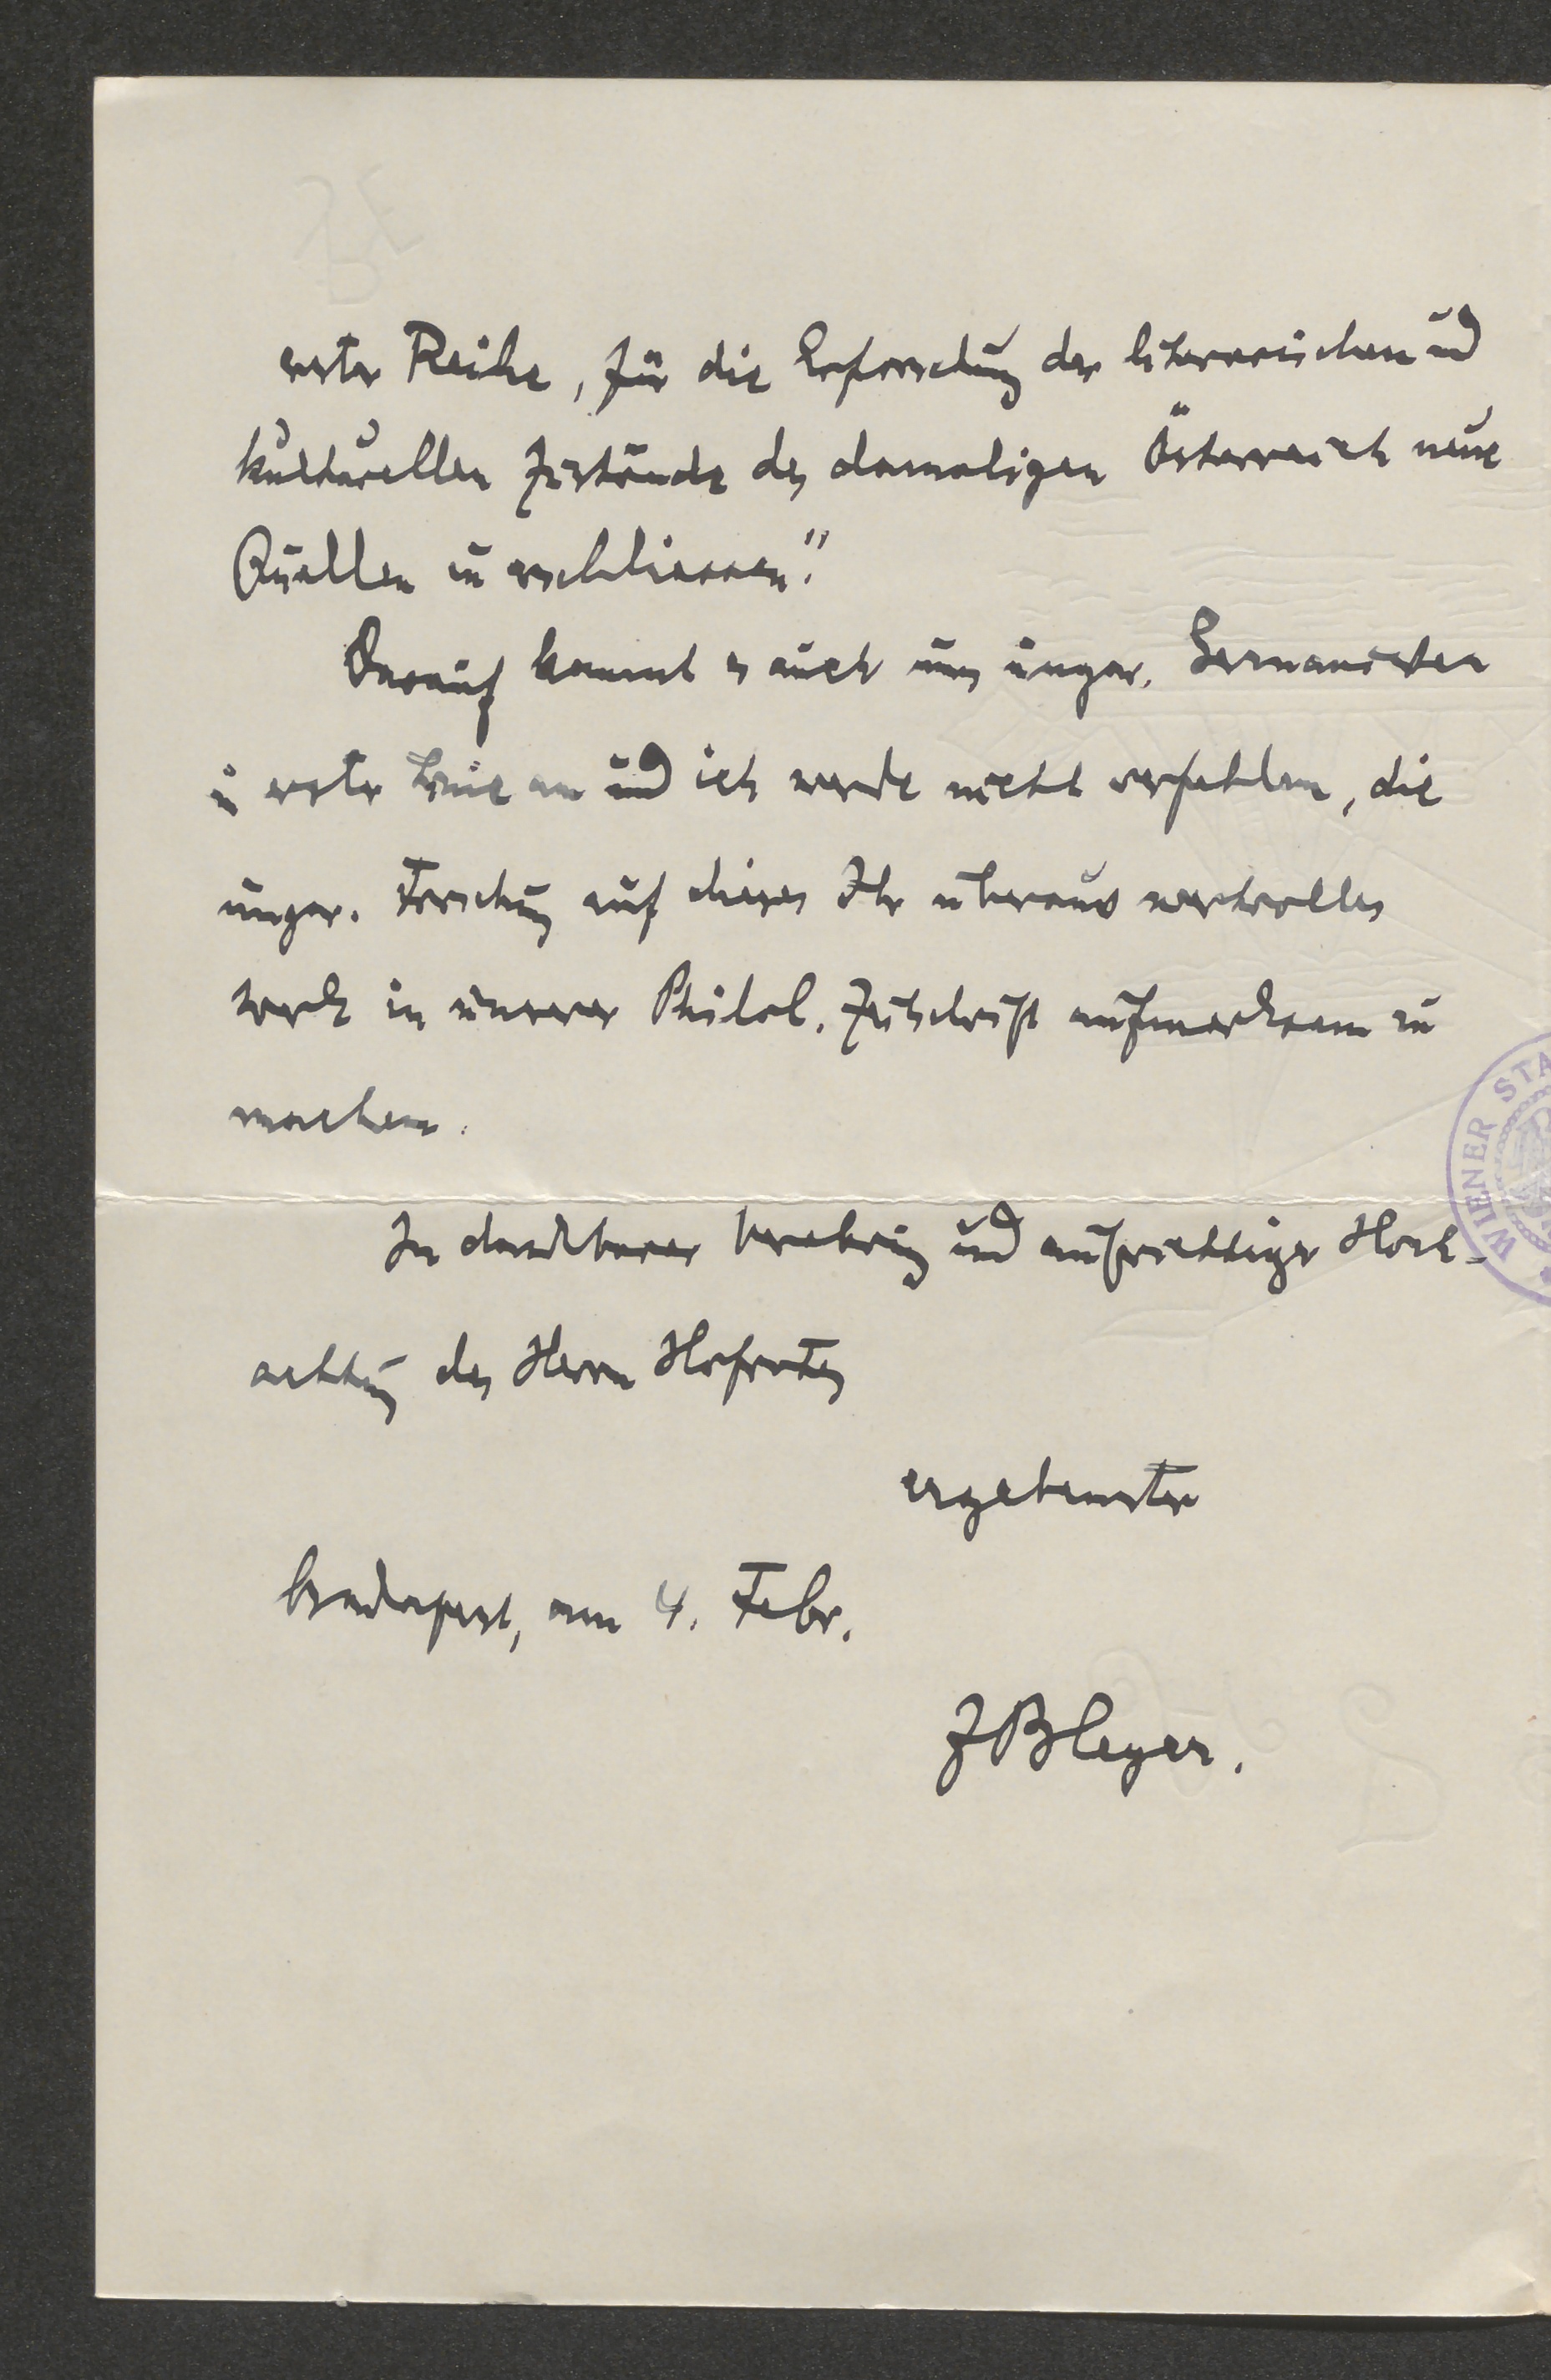 erster Reihe, für die Erforschung der literarischen und
kulturellen Zustände des damaligen Österreich neue
Quellen zu erschliessen."
Darauf kommt es auch uns ungar. Germanisten
in erster Linie an und ich werde nicht verfehlen, die
ungar. Forschung auf dieses Ihr überaus wertvolles
Werk in unserer Philol. Zeitschrift aufmerksam zu
machen.
In dankbarer Verehrung und aufrichtiger Hoch-
achtung des Herrn Hofrates
ergebenster
Budapest, am 4. Febr.
JBleyer.
WIENER STA